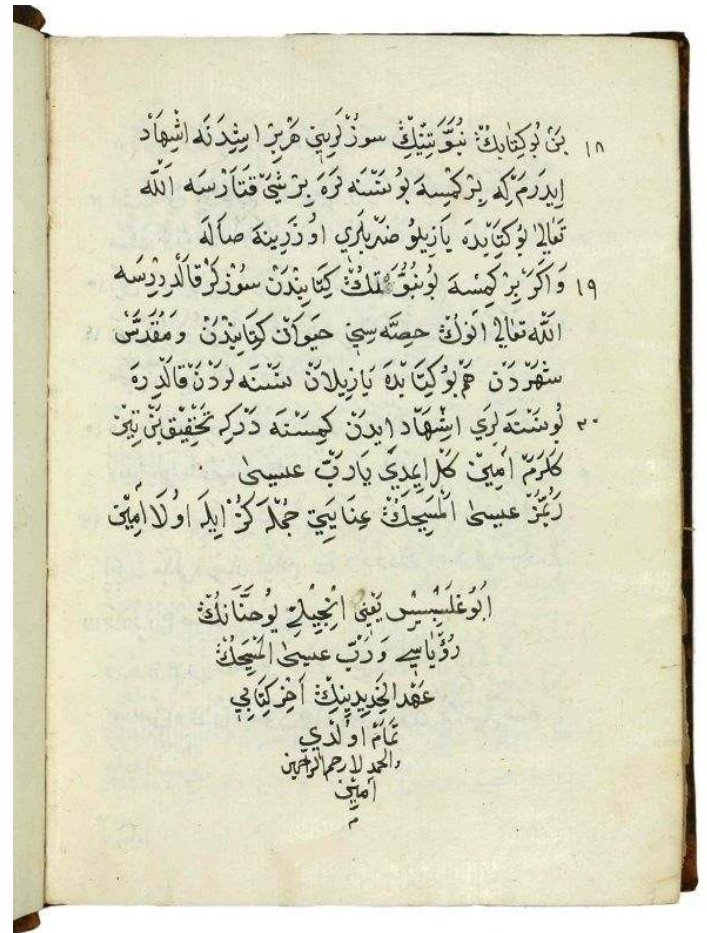 ١٨ بَنْ بُو كِتَابِڭْ نُبُوَّتِينِڭْ سوزْلَرِينِي هَرْ بِرْ اِيشِدَنَه اِشْهَادْ
اِيدَرَمْ كِه بِرْ كِمْسَه بُو نَسْنَه لَرَه بِرْ شَيْ قَتَارْسَه اَللّٰه
تَعَالٰى بُو كِتَابْدَه يَازِيلُو ضَرْبَلَرِي اوُزَرِينَه صَالَه
١٩ وَاَكَرْ بِرْ كِمْسَه بُو نُبُوَّتلِكُڭْ كِتَابِنْدَنْ سُوزْلَرْ قَالْدِرِرْسَه
اَللّٰه تَعَالٰى اَنُوڭْ حِصَّه سِينِي حَيَوَاتْ كِتَابِنْدَنْ وَمُقَدَّسْ
شَهَرْدَنْ هَمْ بُو كِتَابْدَه يَازِيلَانْ نَسْنَه لَرْدَنْ قَالْدِرَه
٢٠ بُو نَسْنَه لَرِي اِشْهَادْ اِيدَنْ كِمْسَنَه دَرْكِه تَحْقِيقْ بَنْ تِيزْ
كَلُرَمْ اَمِينْ كَلْ اِيمْدِي يَا رَبّْ عِيسٰى
رَبُّمُزْ عِيسٰى اَلْمَسِيحِڭْ عِنَايَتِي جُمْلَه كُزْ اِيلَه اوُلَا اَمِينْ
اَبُوغَلَبْسِيسْ يَعْنِي اِنْجِيلْجِي يُوحَنَّانُڭْ
رُؤْيَاسِي وَرَبّْ عِيسٰى اَلْمَسِيحُڭْ
عَهْدْ الْجَدِيدِينِڭْ اٰخِرْ كِتَابِي
تَمَامْ اوُلْدِي
والحمد لارحم الراحمين
اَمِينْ
م